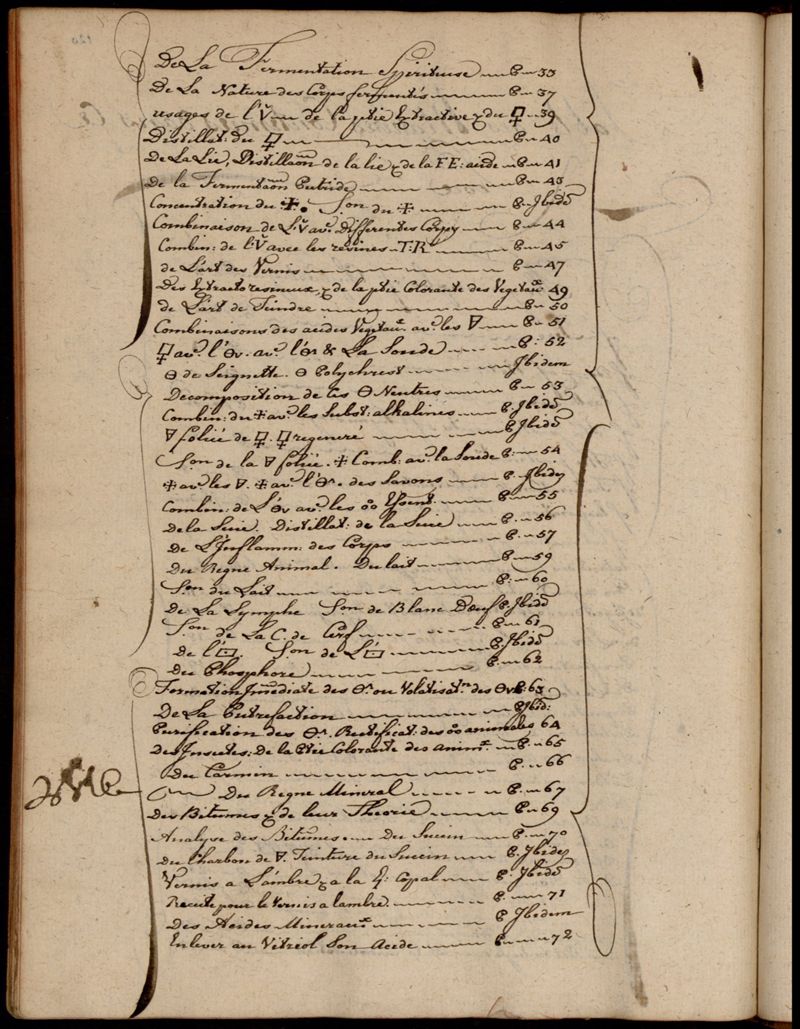 De La Fermentation Spiritueuse P. 33
De La Nature des Corps fermentés P. 37
usages de l'V de la ptie Extractive & du 🜿 39
Distillat: du 🜿 P. 40
De La Lie, Distillaon de la lie & de la FE: acide P. 41
De la Fermentaon Putride P. 43
Concentration du 🜊. Son du 🜊 P. Jbide
Combinaison de L'V av. Differentes Corps P. 44
Combin: de l'V avec les resines T:R P. 45
de L'art des Vernis P. 47
Des Extractoresineux, & de la ptie Colorante des Vegetau 49
de L'art de Teindre P. 50
Combinaisons des acides Vegetau. av. les 🜃 P. 51
🜿 av. l'🜔v. av. l'🜔 & La Soude P. 52
🜔 de Seignette. 🜔 Polychrest Jbidem
Decomposition de ces 🜔 Neutres P. 53
Combin: du 🜊 av. les Subst: alkalines P. Jbide
🜃 foliée de 🜿. 🜿 regeneré P. Jbide
Son de la 🜃 foliée. 🜊 Comb: av. la Soude P. 54
🜊 av. les 🜃. 🜊 av. l'🜔. des Savons P. Jbide
Combin: de L'🜔v av. les oo Essent. P. 55
De la Suie. Distillat: de la Suie P. 56
De L'Inflamm: des Corps P. 57
Du Regne Animal. Du lait P. 59
Son du Lait P. 60
De La Lymphe Son de Blanc D'oeuf P. Jbide
Son de La C. de Cerf P. 61
De l'🝕. Son de L'🝕 P. Jbide
Du Phosphore P. 62
Formation Jmediate des 🜔 ou Volatisatn des 🜔v P. 63
De La Putrefaction P. Jbid:
Purification des 🜔. Rectificat: des oo animales 64
Des Insectes: De la Ptie Colorante des anim. P. 65
Du Carmin P. 66
Du Regne Mineral P. 67
Des Bitumes & de leur Theorie P. 69
Analyse des Bitumes. Du Succin P. 70
Du Charbon de 🜃. Teinture du Succin P. Jbide
Vernis a L'ambre & a la G: Copal P. Jbide
Recete pour le Vernis a lambre P. 71
Des Acides Minerau P. Jbidem
Enlever au Vitriol Son Acide P. 72